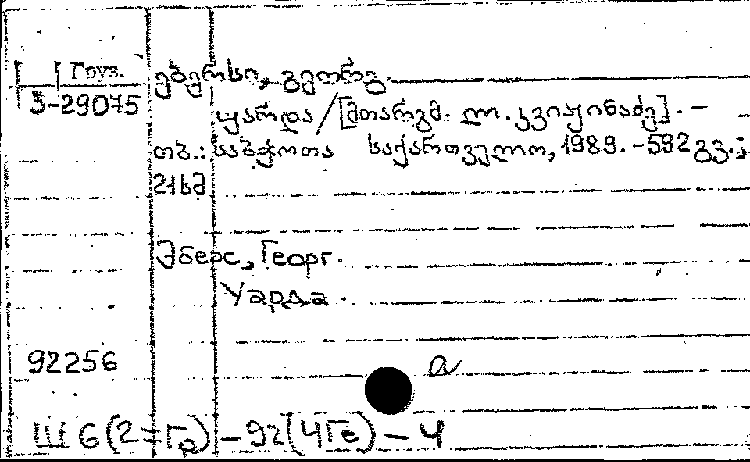 Груз.
3-29075
ებერსი, გეორგ.
უარდა/[მთარგმ. ლ. კვიჟინაძე]. –
თბ.: საბჭოთა საქართველო, 1989. – 592 გვ.;
21 სმ
Эберс, Георг.
Уарда.
92256
а
Ш 6(2=Гр) – 92(4Ге) – 4